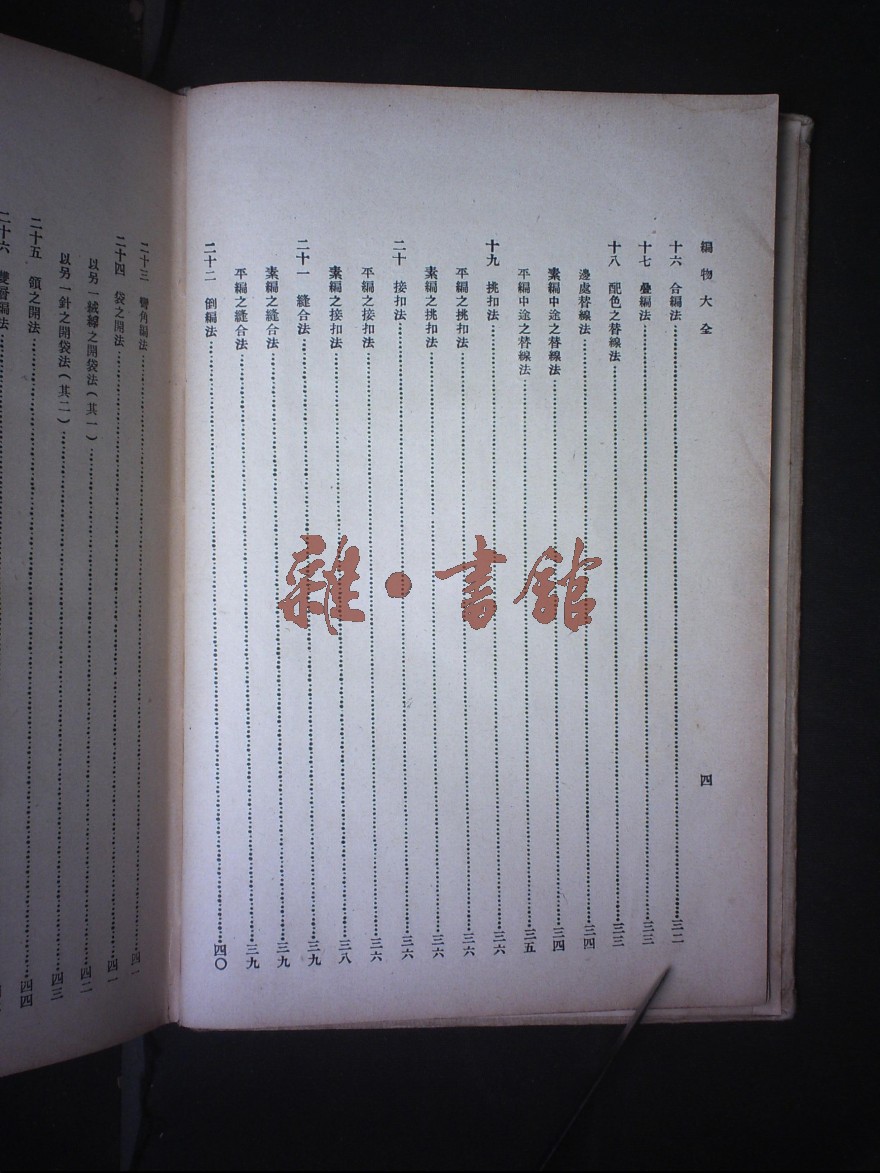 編物大全
四
十六 合編法…………三二
十七 疊編法…………三三
十八 配色之替線法…………三三
邊處替線法…………三四
素編中途之替線法…………三四
平編中途之替線法…………三五
十九 挑扣法…………三六
平編之挑扣法…………三六
素編之挑扣法…………三六
二十 接扣法…………三六
平編之接扣法…………三六
素編之接扣法…………三八
二十一 縫合法…………三九
素編之縫合法…………三九
平編之縫合法…………三九
二十二 倒編法…………四〇
二十三 彎角編法…………四一
二十四 袋之開法…………四一
以另一絨線之開袋法(其一)…………四二
以另一針之開袋法(其二)…………四三
二十五 領之開法…………四四
二十六 雙層編法…………
雜·書館